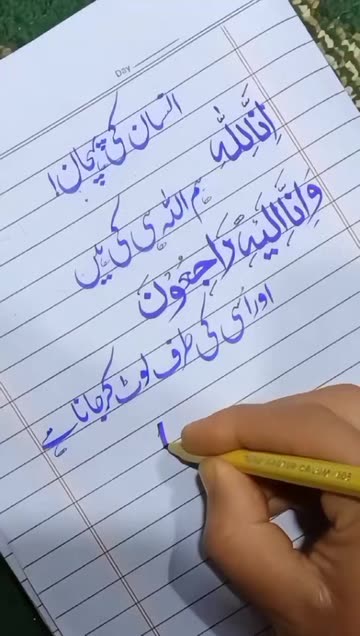 Day
انسان کی پہچان!
اِنَّا لِلّٰہِ
ہم اللہ ہی کی ہیں
وَاِنَّا اِلَیْہِ رَاجِعُوْنَ
اور اسی کی طرف لوٹ کر جانا ہے